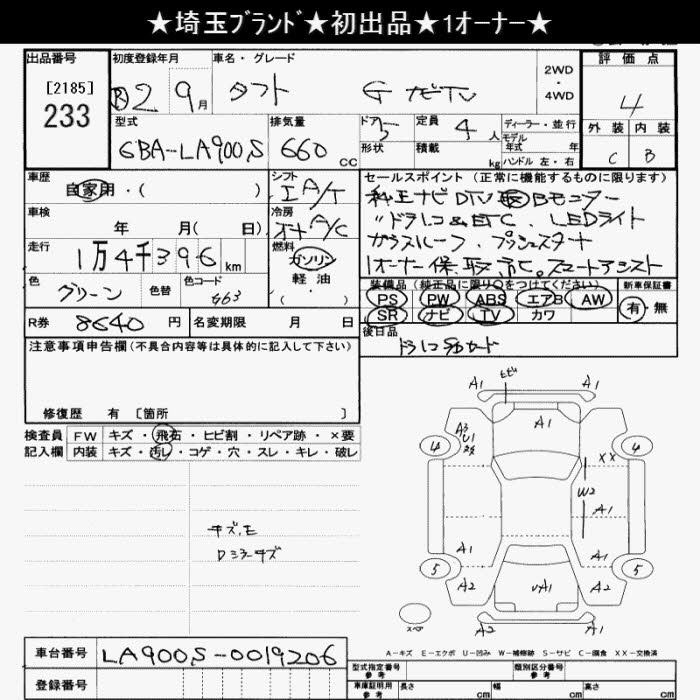 ★埼玉ブランド★初出品★1オーナー★
出品番号 初度登録年月 車名・グレード 評価点
[2185]
233
R2 9月 タフト G ナビTV 2WD・4WD 4
型式 排気量 ドア 5 定員 4人 ディーラー・並行 外装 内装
6BA-LA900S 660cc 形状 積載 kg モデル年式 年 ハンドル 左・右 C B
車歴 シフト セールスポイント(正常に機能するものに限ります)
自家用・( ) IA/T 純正ナビ DTV Bモニター
車検 年 月( 日) 冷房 オートA/C 〃ドラレコ&ETC、LEDライト
走行 1万4千396km 燃料 ガソリン 軽油 ・( ) ガラスルーフ、プッシュスタート
色 グリーン 色替 色コード G63 1オーナー 保、取、 スマートアシスト
装備品(純正品に限り○をつけてください) 新車保証書
PS PW ABS エアB AW 有・無
SR ナビ TV カワ
R券 8640円 名変期限 月 日
後日品 ドラレコSDカード
注意事項申告欄(不具合内容等は具体的に記入して下さい)
修復歴 有 [箇所 ]
検査員 FW キズ・飛石・ヒビ割・リペア跡・×要
記入欄 内装 キズ・汚レ・コゲ・穴・スレ・キレ・破レ
キズ、E
Dミラーキズ
A1 A1
A1
A3
U1
4 4
XX
W2
A1
A1 A1
5 5
A2 UA1 A2
スペア
A2 A1
A-キズ E-エクボ U-凹み W-補修跡 S-サビ C-腐食 XX-交換済
車台番号 LA900S-0019206
登録番号
型式指定番号 参考 類別区分番号 参考
車庫証明用 参考 長さ cm 幅 cm 高さ cm